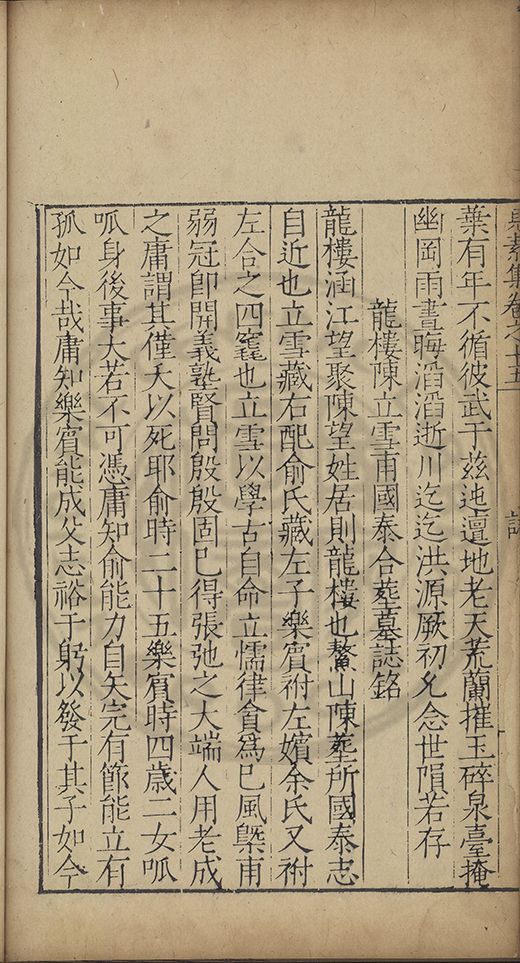 集卷之十五
葉有年不循彼武于茲迍邅地老天荒蘭摧玉碎泉臺掩
幽岡雨晝晦滔滔逝川迄迄洪源厥初允念世隕若存
龍樓陳立雪甫國泰合葬墓誌銘
龍樓涵江望聚陳望姓居則龍樓也鰲山陳葬所國泰志
自近也立雪藏右配俞氏藏左子樂賓祔左嬪余氏又祔
左合之四窀也立雪以學古自命立懦律貪為巳風槩甫
弱冠卽開義塾賢問殷殷固巳得張弛之大端人用老成
之庸謂其僅夭以死耶俞時二十五樂賓時四歲二女呱
呱身後事大若不可憑庸知俞能力自矢完有節能立有
孤如今哉庸知樂賓能成父志裕于躬以發于其子如今